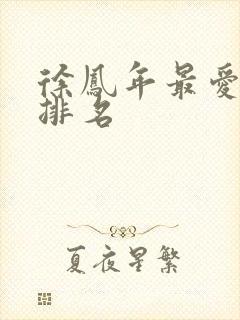 徐鳳年最愛
排名
夏夜星繁